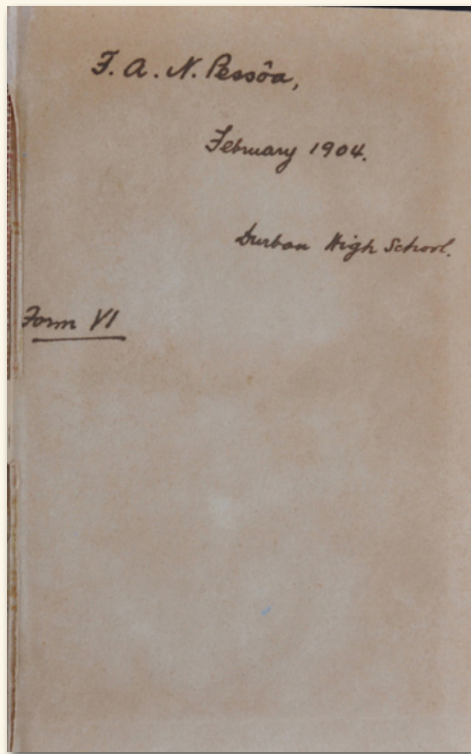 F. A. N. Pessôa,
February 1904.
Durban High School.
Form VI